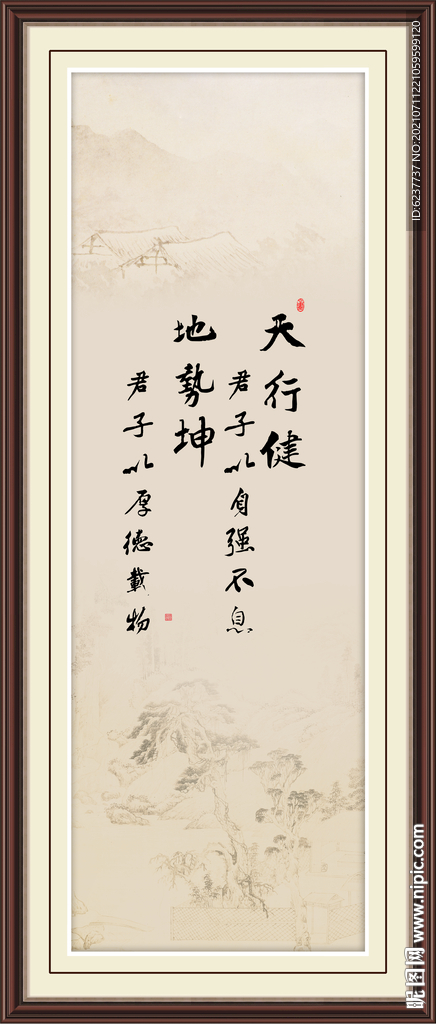 天行健
君子以自强不息
地勢坤
君子以厚德載物
ID:6237737 NO:20210711221059599120
昵图网 www.nipic.com